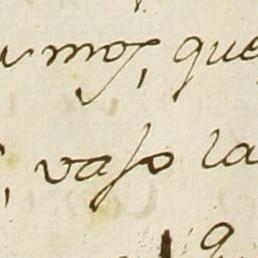 mos, que
, vaso la